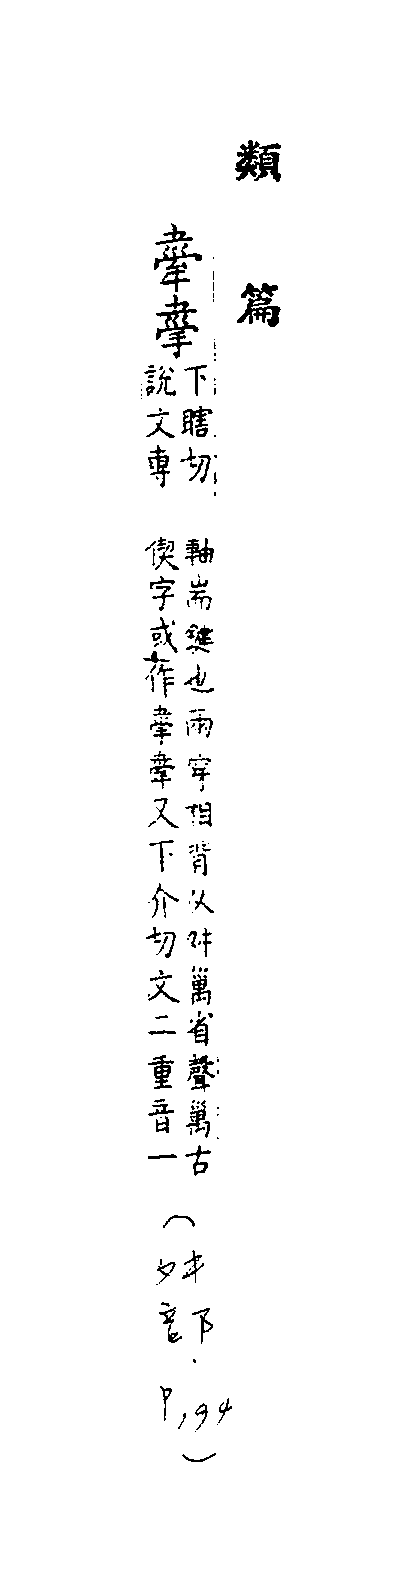 類篇
舝
下瞎切
說文專
軸耑鍵也兩穿相背从舛省聲古
偰字或作舝又下介切文二重音一
(舛部.P.94)